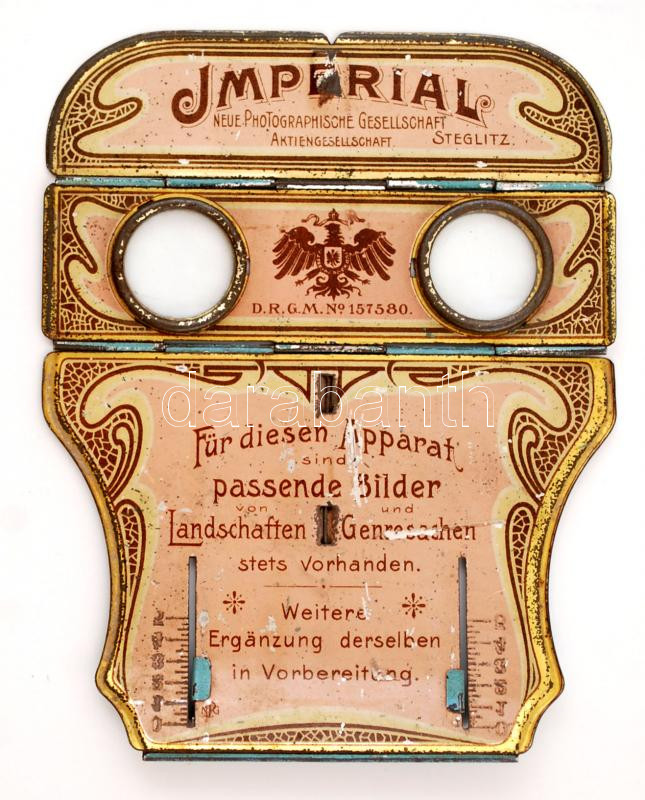 IMPERIAL
NEUE PHOTOGRAPHISCHE GESELLSCHAFT
AKTIENGESELLSCHAFT STEGLITZ.
D.R.G.M. Nº 157580.
darabanth
Für diesen Apparat
sind
passende Bilder
von und
Landschaften Genresachen
stets vorhanden.
Weitere
Ergänzung derselben
in Vorbereitung.